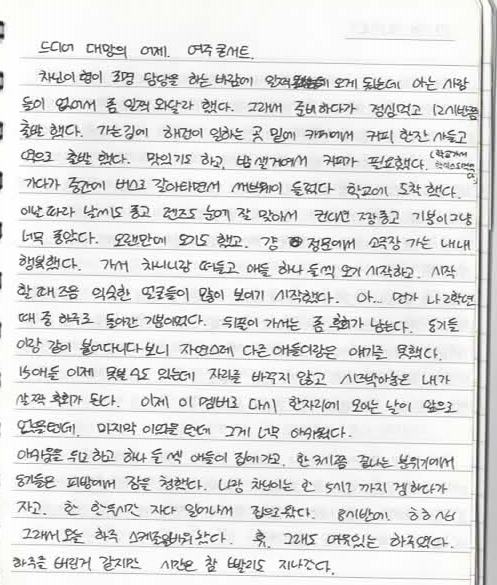 드디어 대망의 어제. 여주콘서트.
차닌이형이 조명 담당을 하는 바람에 일찍 오게 됐는데 아는 사람
들이 없어서 좀 일찍 와달라 했다. 그래서 준비하다가 점심먹고 12시반쯤
출발 했다. 가는길에 해건이 일하는 곳 밑에 카페에서 커피 한잔 사들고
역으로 출발 했다. 맞의기도 하고, 밤 샐거여서 커피가 필요했다. (학교가서
가다가 중간에 버스로 갈아타면서 써브웨이 들렸다 학교에 도착 했다.
이날따라 날씨도 좋고 렌즈도 눈에 잘 맞아서 컨디션 개좋고 기분이 그냥
너무 좋았다. 오랜만에 오기도 했고. 걍 정문에서 소극장 가는 내내
행복했다. 가서 차니니랑 떠들고 애들 하나 둘씩 오기 시작하고. 시작
할 때즈음 익숙한 얼굴들이 많이 보이기 시작했다. 아... 먼가 나 2학년
때 중 하루로 돌아간 기분이었다. 뒤풀이 가서는 좀 후회가 남는다. 8기들
이랑 같이 붙어다니다 보니 자연스레 다른 애들이랑은 얘기를 못했다.
15애들 이제 못볼 수도 있는데 자리를 바꾸지 않고 있은 내가
살짝 후회가 된다. 이제 이 멤버로 다시 한자리에 모이는 날이 앞으로
없을텐데. 마지막 이었을 텐데 그게 너무 아쉬웠다.
아쉬움을 뒤로 하고 하나 둘 씩 애들이 집에가고. 한 3시쯤 끝나는 분위기에서
8기들은 피방에서 잠을 청했다. 나랑 차닌이는 한 5시 까지 겜하다가
자고. 한 한두시간 자다 일어나서 집으로 왔다. 8시반에. ㅎㅎ ㅅㅂ
그래서 오늘 하루 스케줄 왔다. 훗, 그래도 여유있는 하루였다.
하루를 버린거 같지만 시간은 참 빨리도 지나간다.